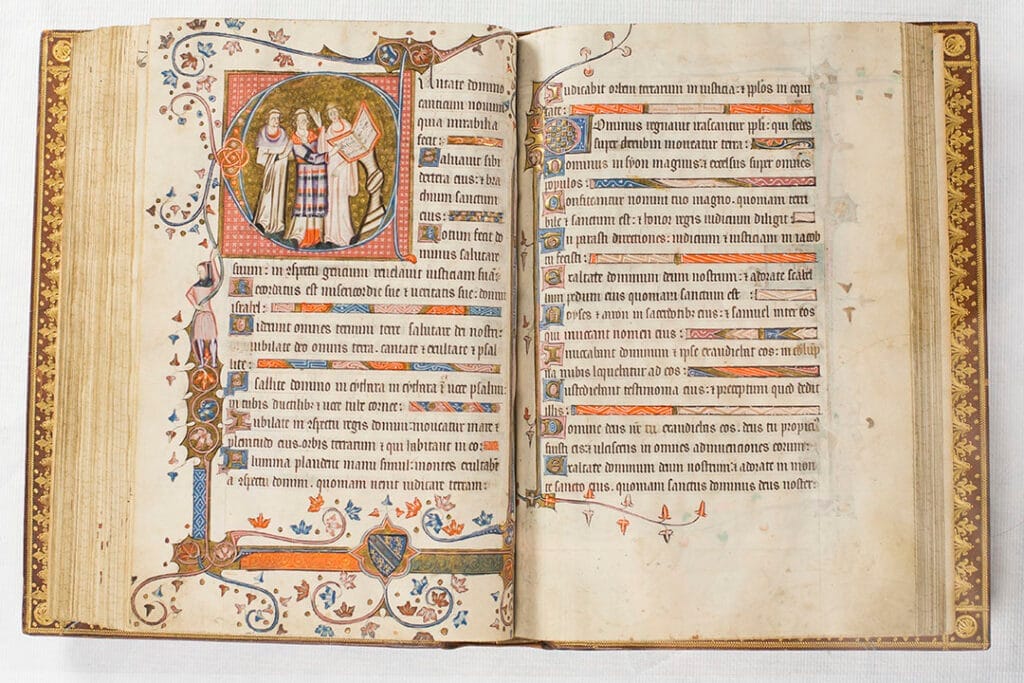 Cantate domino
canticum nouum
quia mirabilia
fecit :
Saluauit sibi
dextera eius : & bra
chium sanctum
eius :
Notum fecit do
minus salutare
suum : in ɔspectu gencium reuelauit iusticiam suã
Recordatus est misericordie sue & ueritatis sue : domui
israhel :
Uiderunt omnes termini terre salutare dei nostri :
Iubilate deo omnis terra . cantate & exultate & psal
lite :
Psallite domino in cythara in cythara & uoce psalmi :
in tubis ductilibus & uoce tube cornee :
Iubilate in ɔspectu regis domini : moueatur mare &
plenitudo eius . orbis terrarum & qui habitant in eo :
Flumina plaudent manu simul : montes exultabũt
a ɔspectu domini . quoniam uenit iudicare terram :
Iudicabit orbem terrarum in iusticia : & pplos in equi
tate :
Dominus regnauit irascantur ppli : qui sedes
super cherubin moueatur terra :
Dominus in syon magnus : & excelsus super omnes
populos :
Confiteantur nomini tuo magno . quoniam terri
bile & sanctum est : & honor regis iudicium diligit :
Tu parasti directiones : iudicium & iusticiam in iacob
tu fecisti :
Exaltate dominum deum nostrum : & adorate scabel
lum pedum eius quoniam sanctum est :
Moyses & aaron in sacerdotibus eius : & samuel inter eos
qui inuocant nomen eius :
Inuocabant dominum & ipse exaudiebat eos : in colup
na nubis loquebatur ad eos :
Custodiebant testimonia eius : & preceptum quod dedit
illis :
Domine deus nr̃ tu exaudiebas eos . deus tu propici9
fuisti eis : & ulciscens in omnes adinuenciones eorum :
Exaltate dominum deum nostrum : & adorate in mon
te sancto eius . quoniam sanctus dominus deus noster :